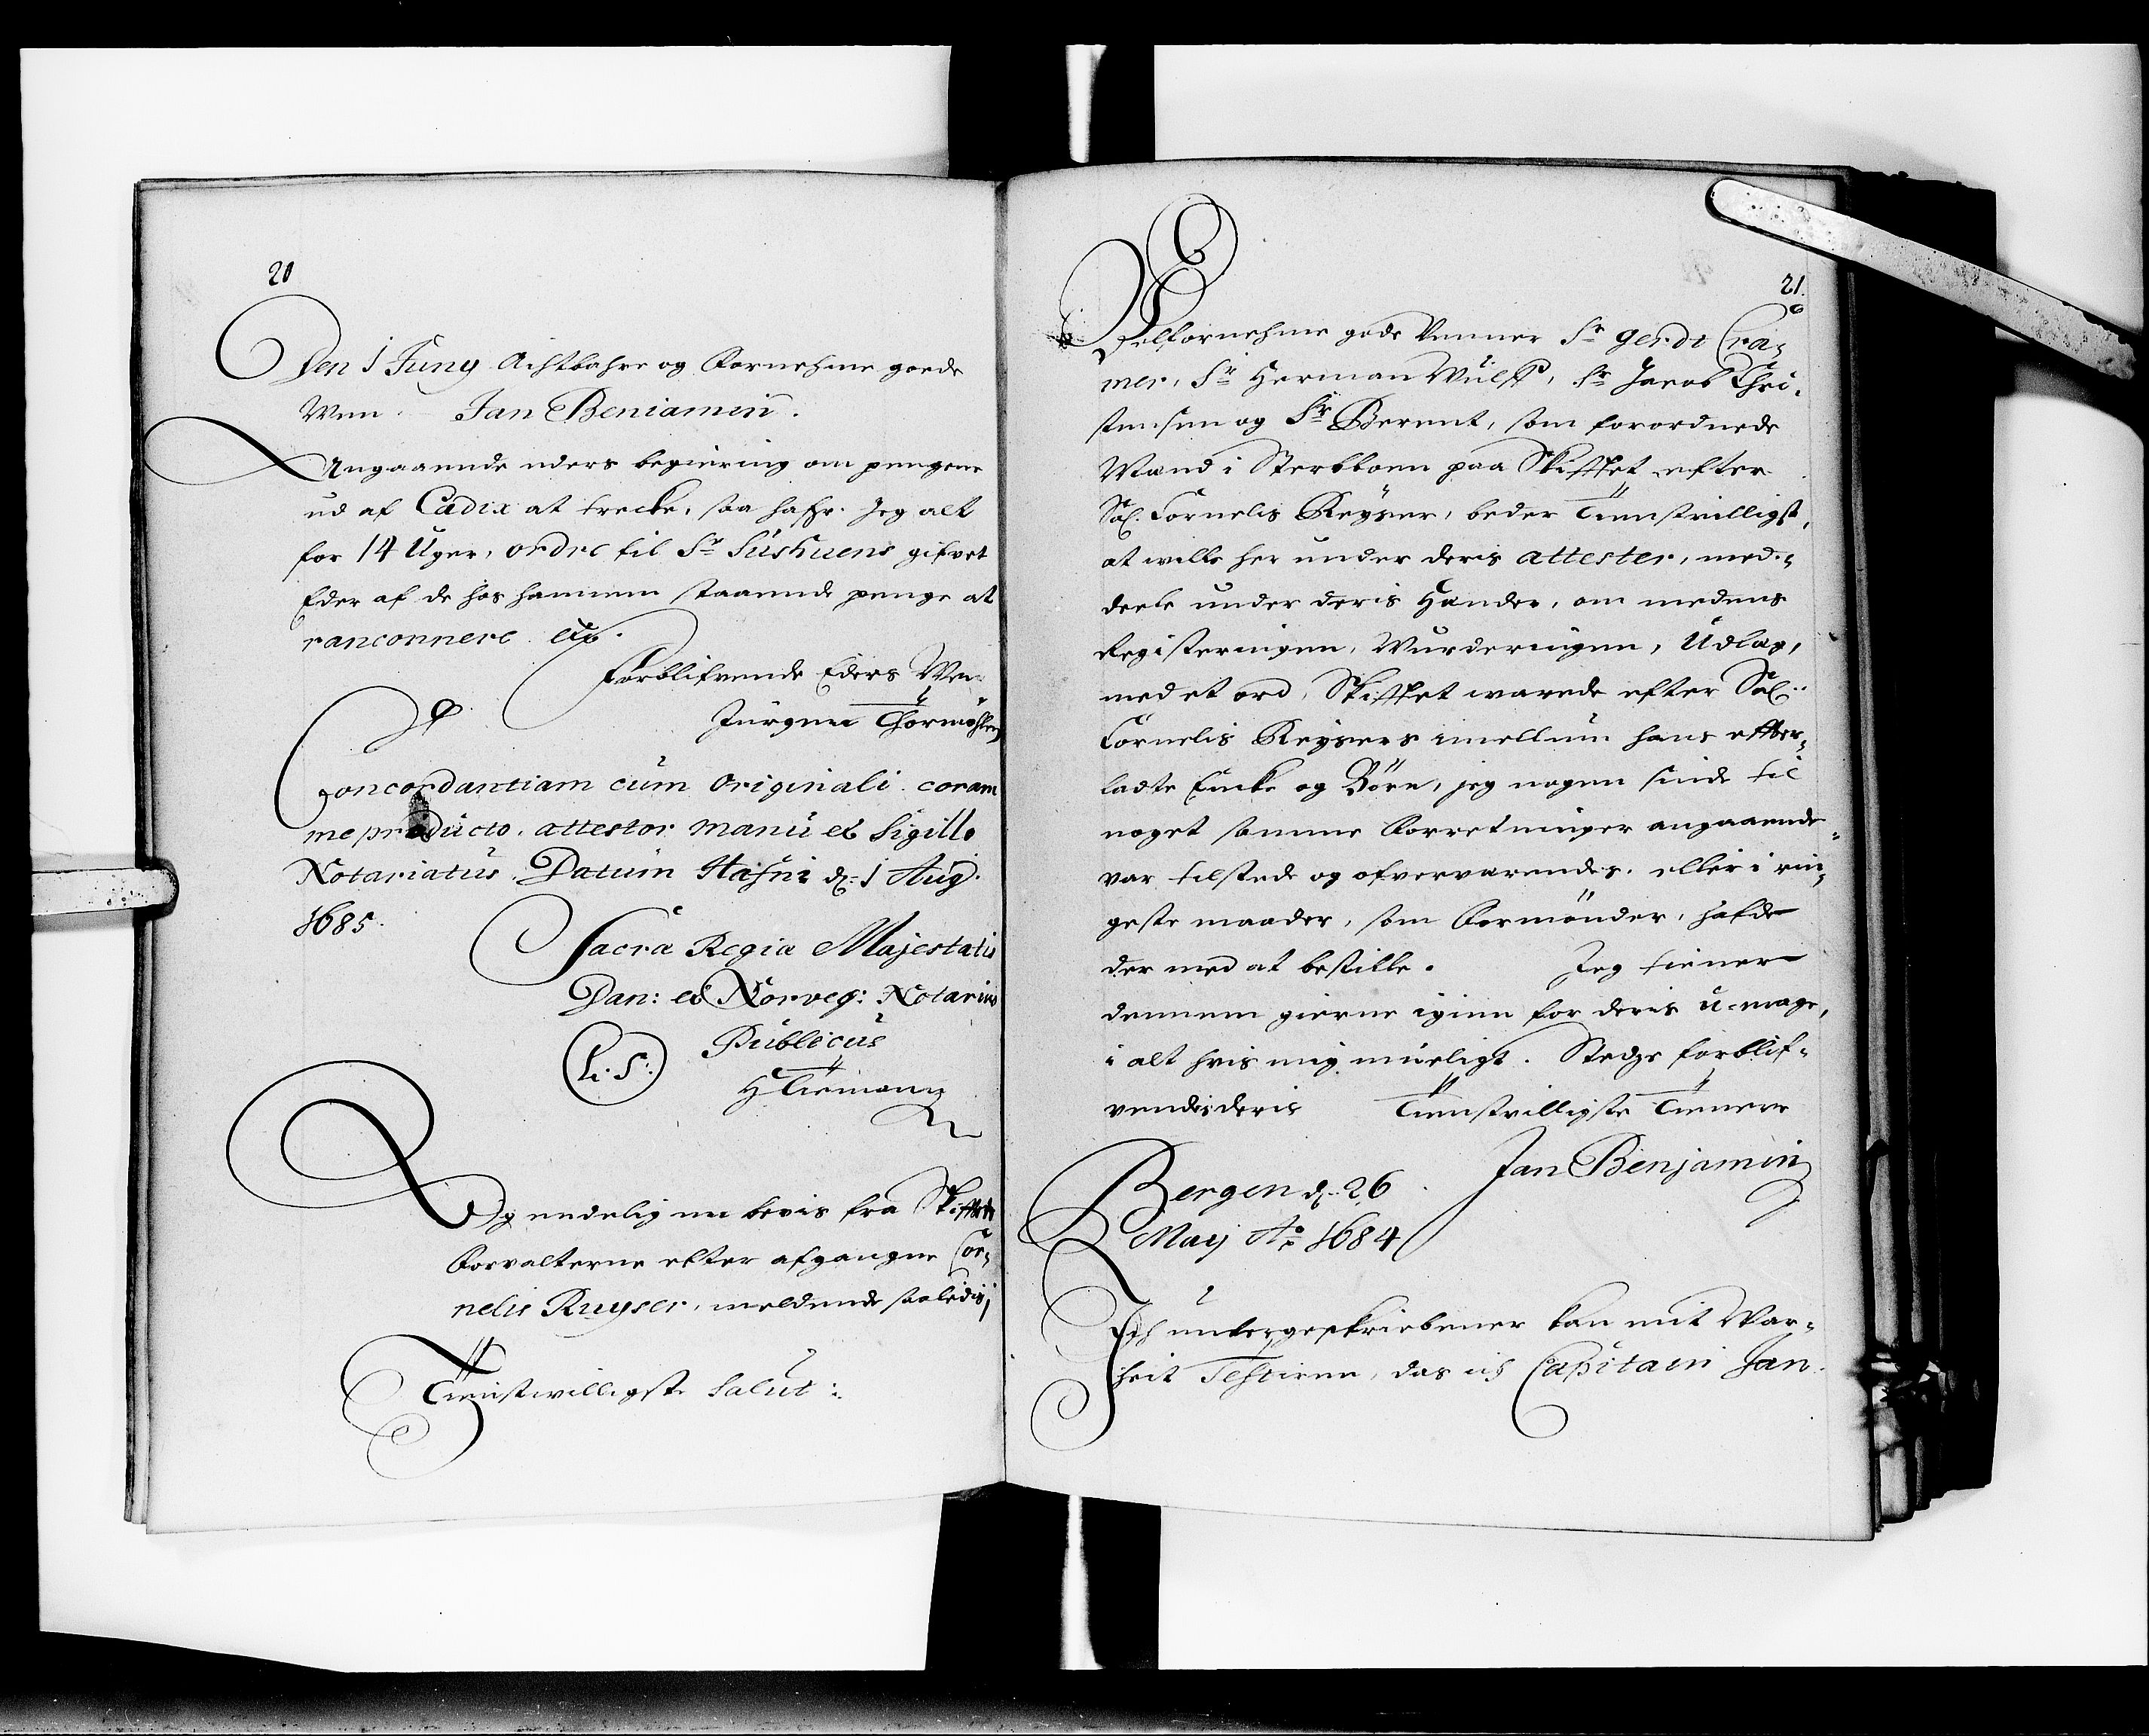 20
Den 1 Juny Achtbahre og Fornehme goede
Wen. Jan Beniamin.
Angaaende eders begiering om pengene
ud af Cadix at trecke, saa hafr. Jeg alt
for 14 Uger, ordre til Sr Süshuens gifvet
Eder af de hos hannem staaende penge at
ranconnere etc.
Forblifvende Eders Wen
Jürgen Thormöhlen
Concordantiam cum Originali coram
me producto, attestor manu et Sigillo
Notariatus. Datum Hafni d. 1 Aug.
1685.
Sacra Regia Majestatis
Dan: et Norveg: Notarius
Publicus
L. S: H Tiemann
Og endelig een bevis fra Skiftets
Forvalterne efter afgangne Cor-
nelis Ruyser, meldende saaledis,
Tienstwilligste Salut:
21.
Velfornehme gode Venner Sr Gerdt Cra-
mer, Sr Herman Wulff, Sr Jacob Chri-
stensen og Sr Berent, som forordnede
Mænd i Sterbboen paa Skiftet efter
Sal. Cornelis Reyser, beder Tienstvilligst,
at wille her under deris attester, med-
deele under deris Hænder, om medens
Registeringen, Wurderingen, Udlag,
med et ord, Skiftet warede efter Sal.
Cornelis Reysers imellum hans efter-
ladte Encke og Börn, jeg nogen sinde til
noget samme Forretninger angaaende
var tilstede og ofververendes, eller i rin-
geste maader, som Formönder, hafde
der med at bestille. Jeg tiener
dennem gierne igien for deris u-mage,
i alt hvis mig mueligt. Stedze forblif-
vendis deris Tienstvilligste Tienere
Jan Benjamin
Bergen d. 26
Maij Ao 1684
Ich untergeskriebener kan mit War-
heit Testiren, das ich Capitain Jan